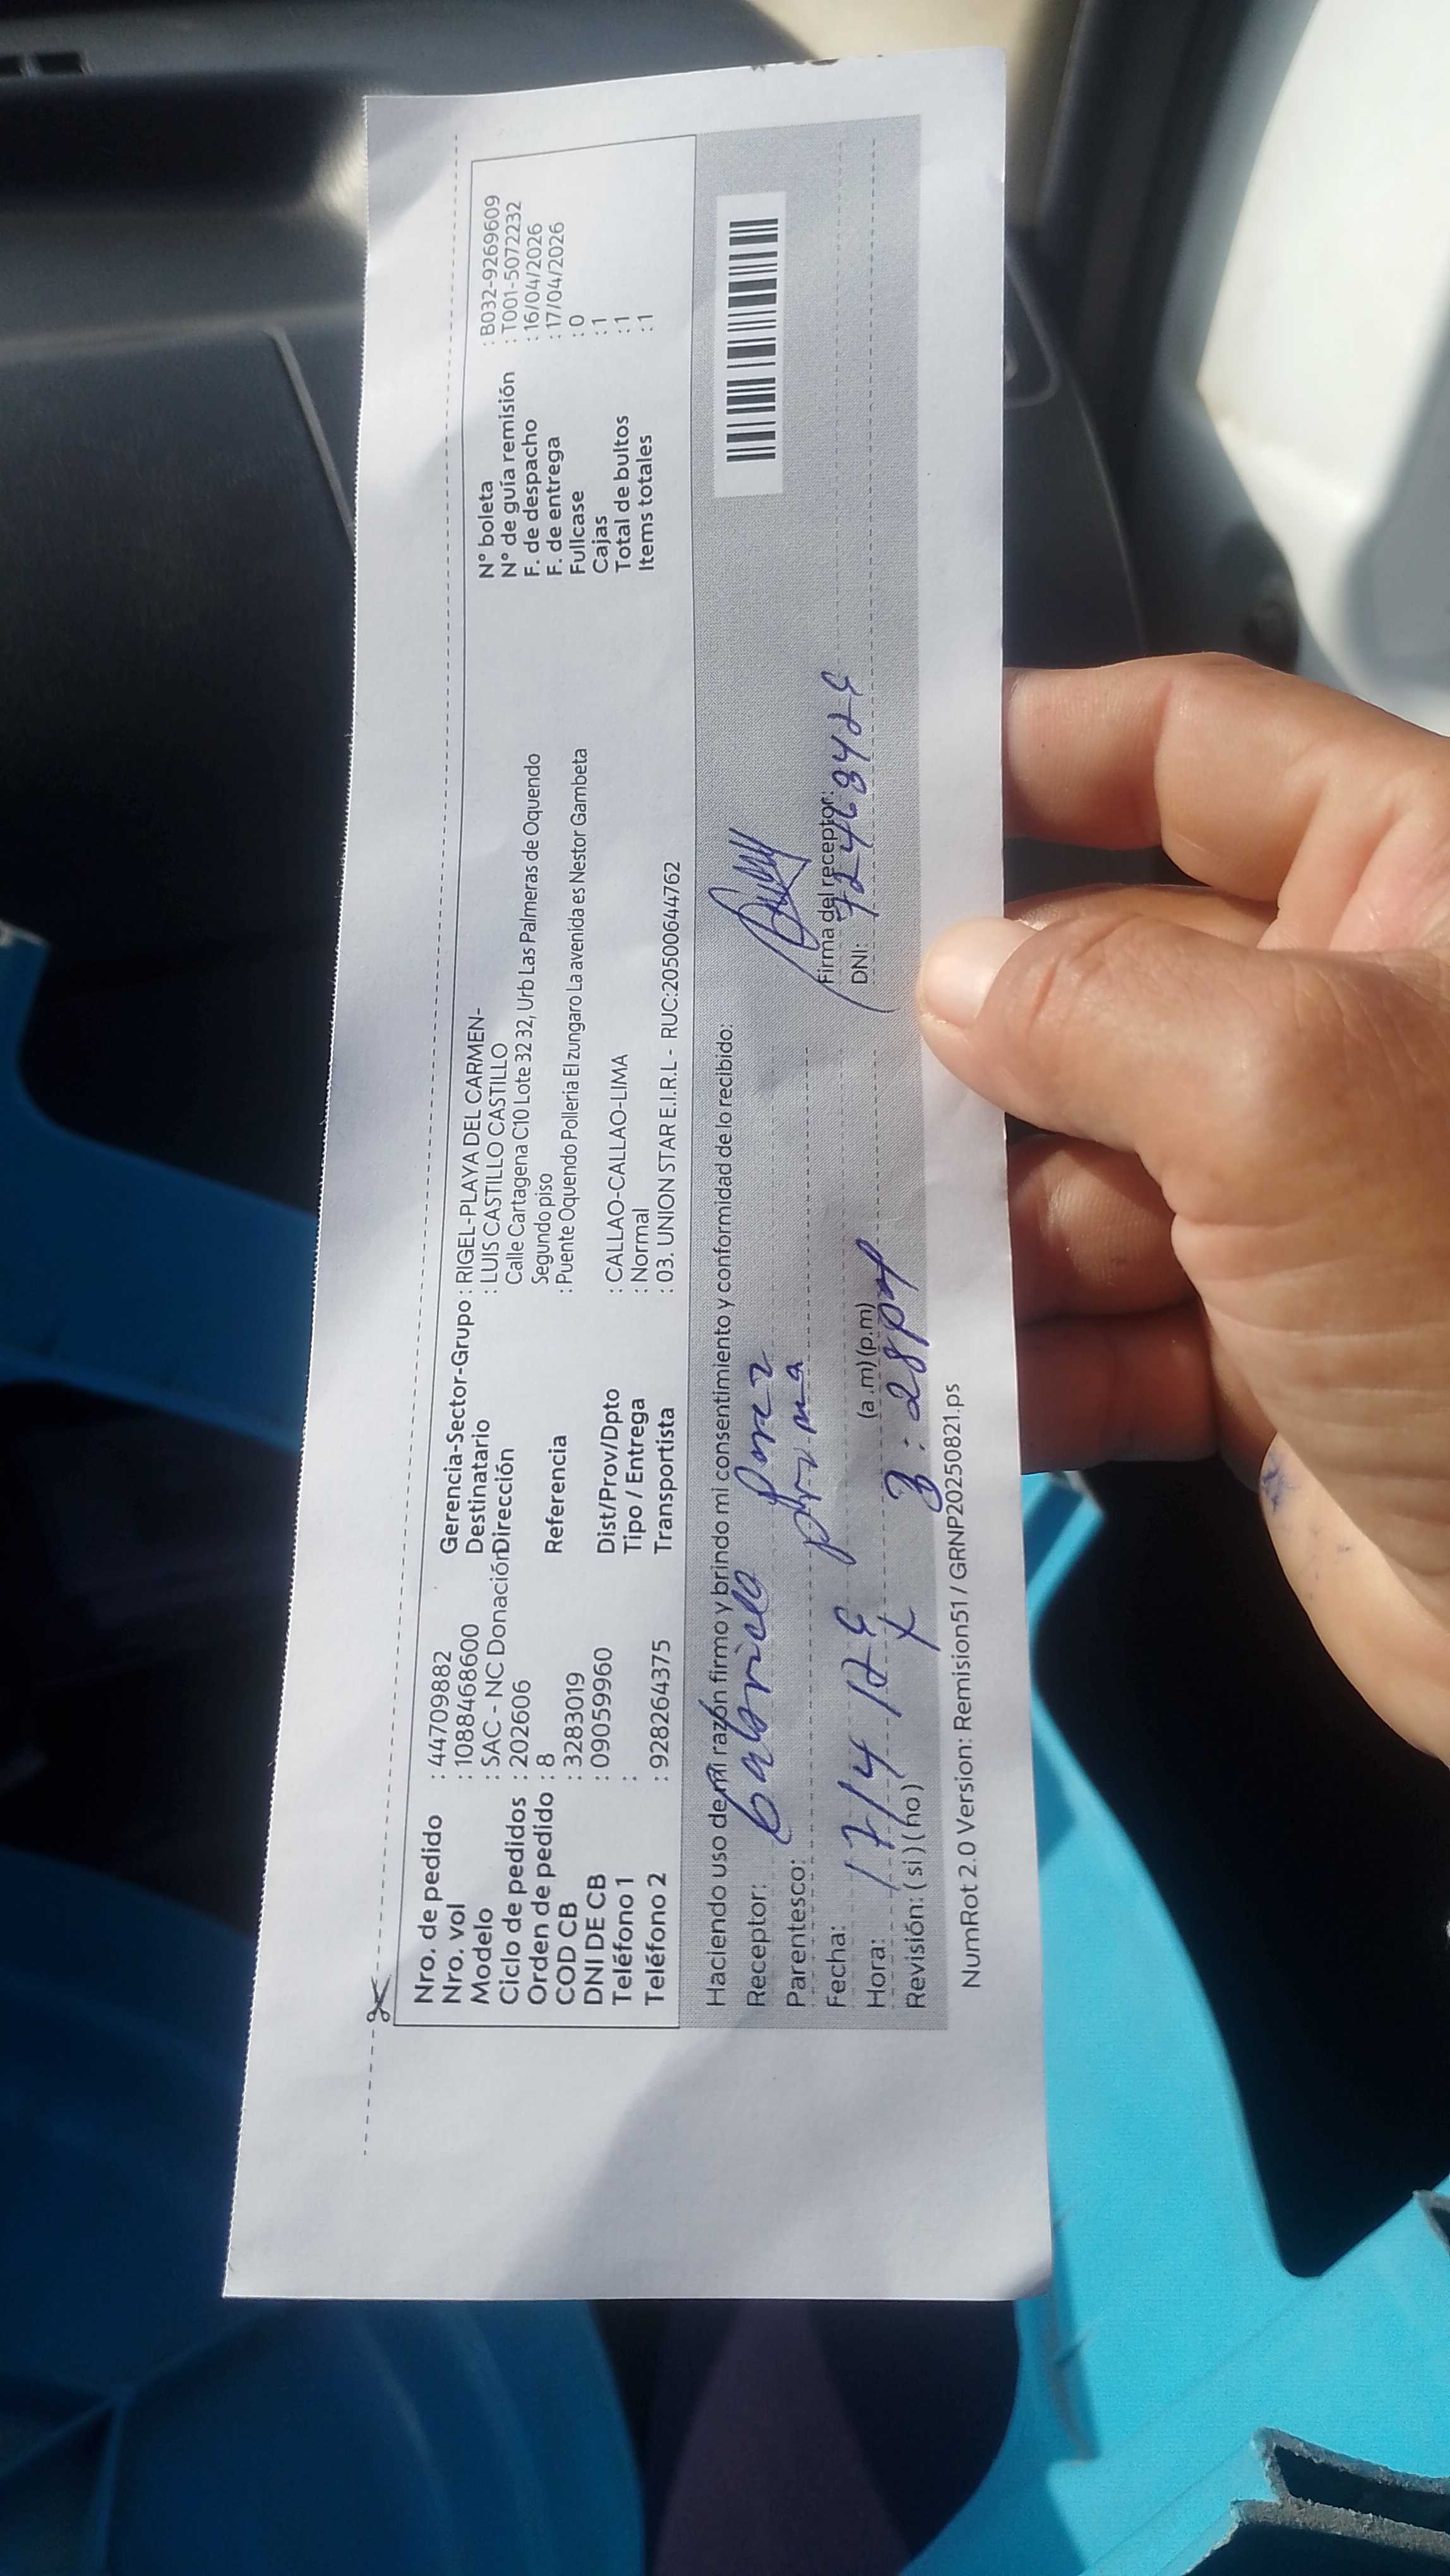 Nro. de pedido : 44709882
Nro. vol : 1088468600
Modelo : SAC - NC Donación
Ciclo de pedidos : 202606
Orden de pedido : 8
COD CB : 3283019
DNI DE CB : 09059960
Teléfono 1 :
Teléfono 2 : 928264375
Gerencia-Sector-Grupo : RIGEL-PLAYA DEL CARMEN-
Destinatario : LUIS CASTILLO CASTILLO
Dirección Calle Cartagena C10 Lote 32 32, Urb Las Palmeras de Oquendo
Segundo piso
Referencia : Puente Oquendo Polleria El zungaro La avenida es Nestor Gambeta
Dist/Prov/Dpto : CALLAO-CALLAO-LIMA
Tipo / Entrega : Normal
Transportista : 03. UNION STAR E.I.R.L - RUC:20500644762
N° boleta : B032-9269609
N° de guía remisión : T001-5072232
F. de despacho : 16/04/2026
F. de entrega : 17/04/2026
Fullcase : 0
Cajas : 1
Total de bultos : 1
Items totales : 1
Haciendo uso de mi razón firmo y brindo mi consentimiento y conformidad de lo recibido:
Receptor: Gabriela
Parentesco: prima
Fecha: 17/4/26
Hora: (a.m) (p.m) 3:28pm
Revisión: ( si ) ( no ) x
Firma del receptor:
DNI:
NumRot 2.0 Version: Remision51 / GRNP20250821.ps